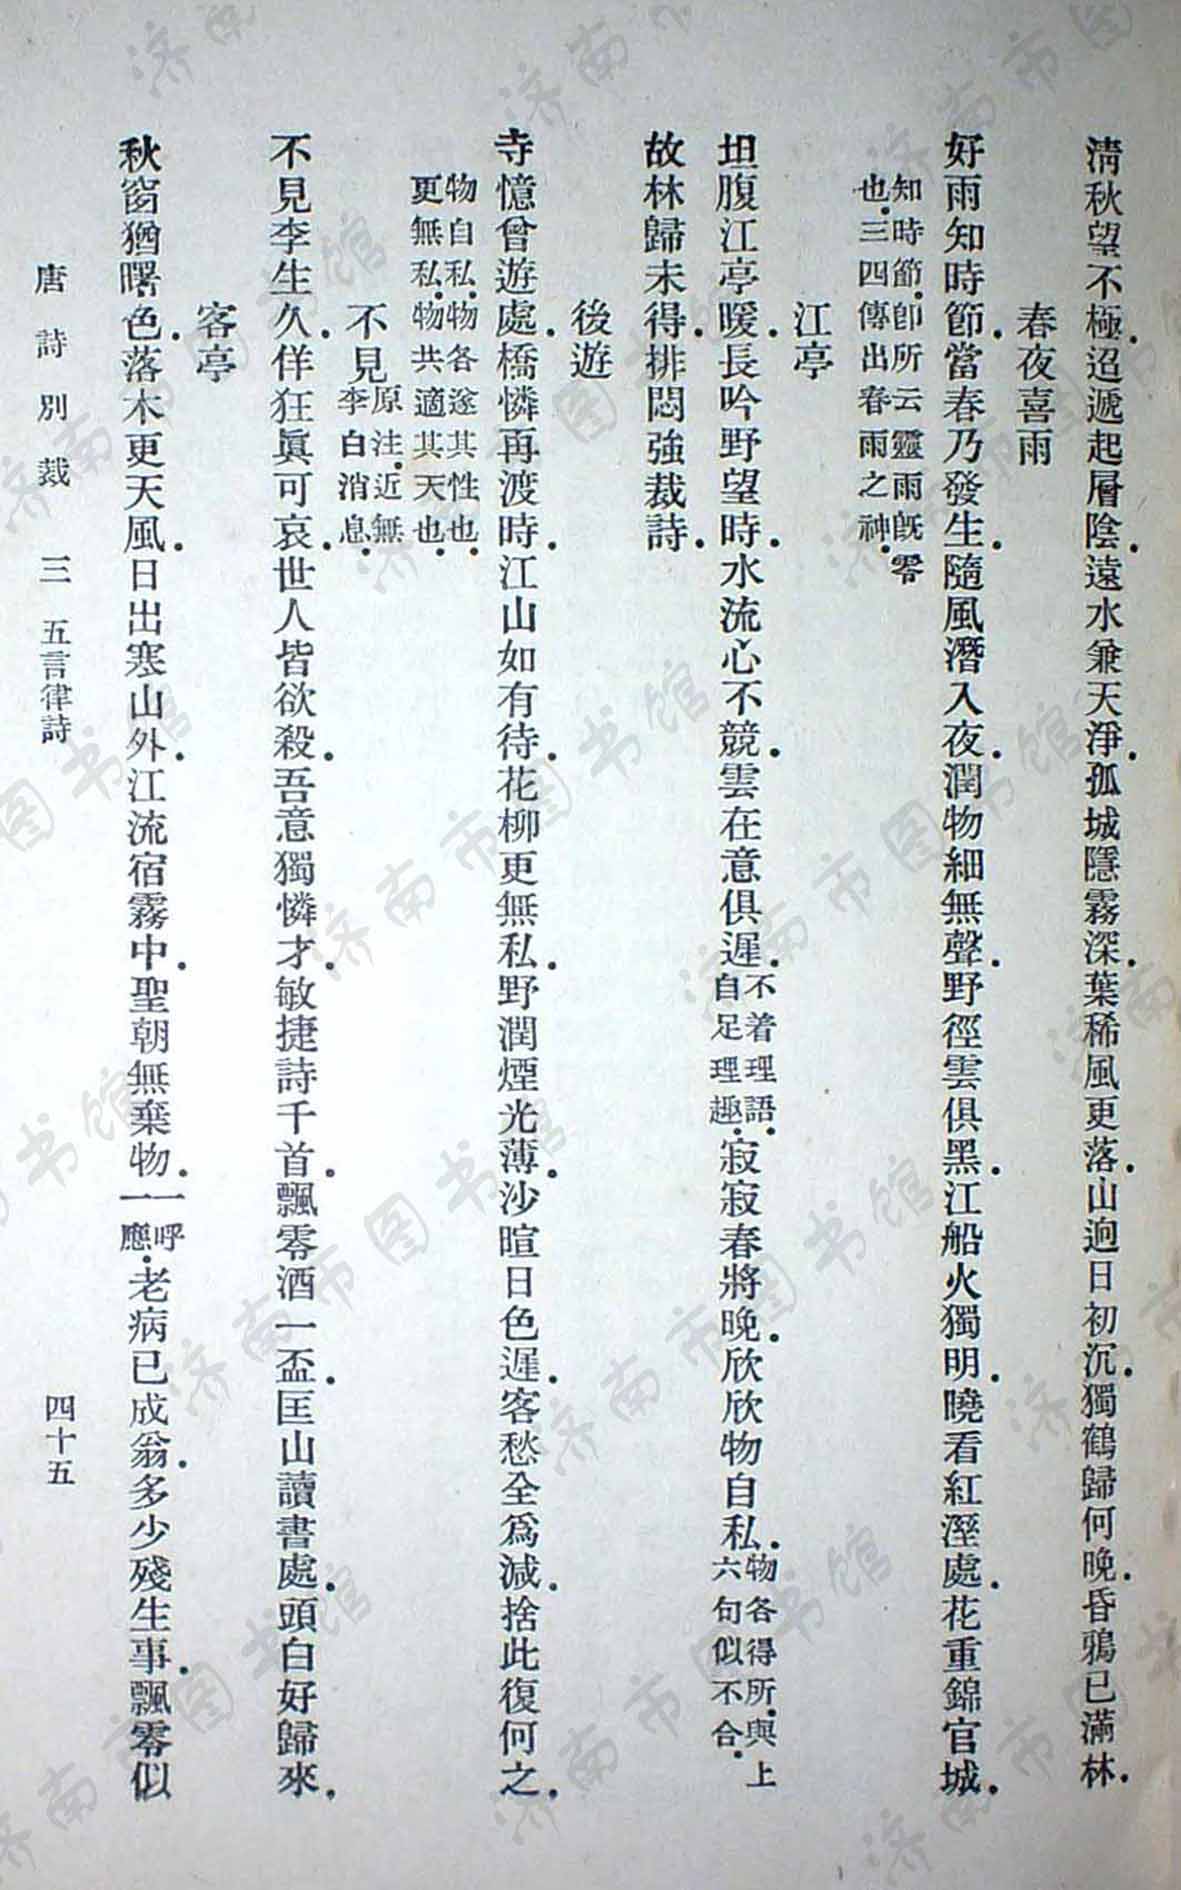 清秋望不極．迢遞起層陰．遠水兼天淨．孤城隱霧深．葉稀風更落．山迥日初沉．獨鶴歸何晚．昏鴉已滿林．
春夜喜雨
好雨知時節．當春乃發生．隨風潛入夜．潤物細無聲．野徑雲俱黑．江船火獨明．曉看紅溼處．花重錦官城．
知時節．卽所云靈雨旣零
也．三四傳出春雨之神．
江亭
坦腹江亭暖．長吟野望時．水流心不競．雲在意俱遲．不着理語．自足理趣．寂寂春將晚．欣欣物自私．物各得所．與上六句似不合．
故林歸未得．排悶強裁詩．
後遊
寺憶曾遊處．橋憐再渡時．江山如有待．花柳更無私．野潤煙光薄．沙暄日色遲．客愁全爲減．捨此復何之．
物自私．物各遂其性也．
更無私．物共適其天也．
不見原注．近無李白消息．
不見李生久．佯狂眞可哀．世人皆欲殺．吾意獨憐才．敏捷詩千首．飄零酒一盃．匡山讀書處．頭白好歸來．
客亭
秋窗猶曙色．落木更天風．日出寒山外．江流宿霧中．聖朝無棄物．一呼一應．老病已成翁．多少殘生事．飄零似
唐詩別裁 三 五言律詩 四十五
济南市图书馆